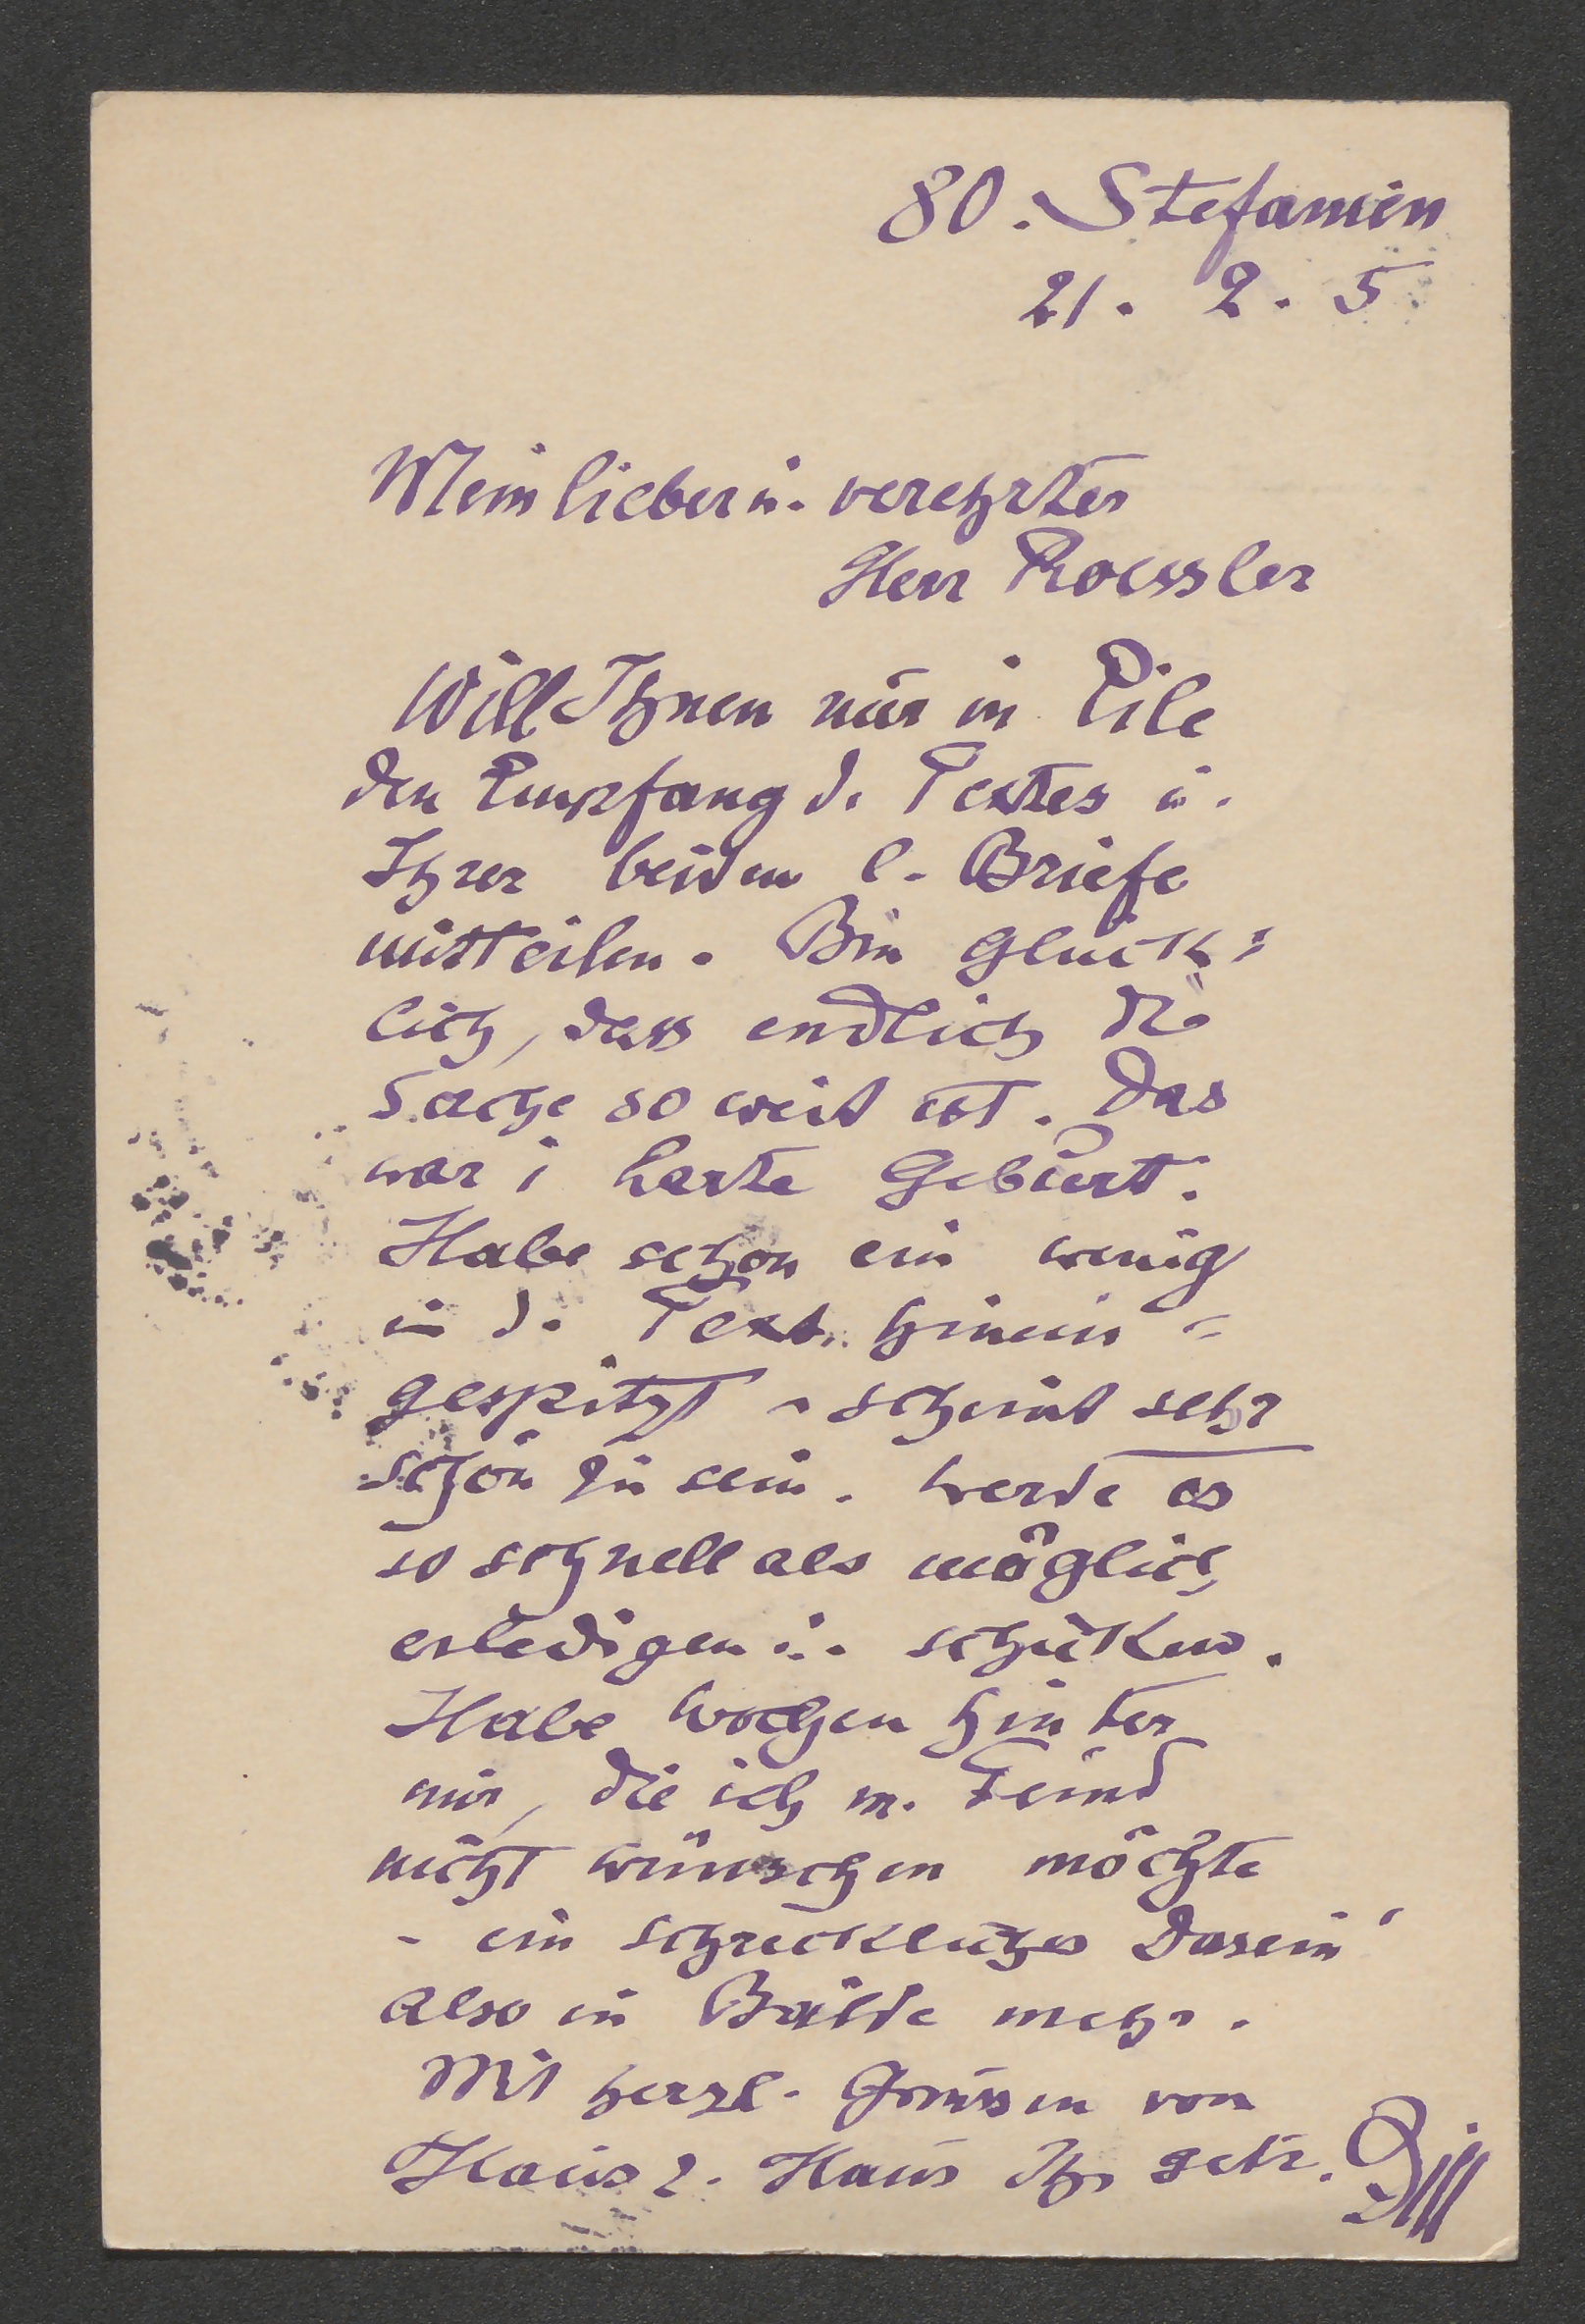 80. Stefanien
21. 2. 5
Mein lieber u. verehrter
Herr Roessler
Will Ihnen nur in Eile
den Empfang d. Textes u.
Ihrer beiden l. Briefe
mitteilen. Bin glück-
lich, dass endlich die
Sache so weit ist. Das
war 1 harte Geburt.
Habe schon ein wenig
in d. Text hinein-
gespitzt - scheint sehr
schön zu sein. Werde es
so schnell als möglich
erledigen u. schicken.
Habe Wochen hinter
mir, die ich m. Feind
nicht wünschen möchte
- ein schreckliches Dasein!
also in Bälde mehr.
Mit herzl. Grüssen von
Haus z. Haus Ihr getr. Dill